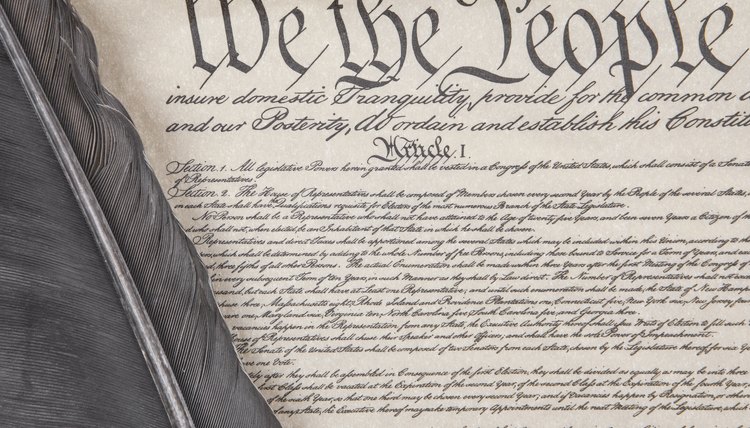 We the People
insure domestic Tranquility, provide for the common
and our Posterity, do ordain and establish this Constit
Article. I.
Section. 1. All legislative Powers herein granted shall be vested in a Congress of the United States, which shall consist of a Senate
of Representatives.
Section. 2. The House of Representatives shall be composed of Members chosen every second Year by the People of the several States,
in each State shall have the Qualifications requisite for Electors of the most numerous Branch of the State Legislature.
No Person shall be a Representative who shall not have attained to the Age of twenty five Years, and been seven Years a Citizen of
who shall not, when elected, be an Inhabitant of that State in which he shall be chosen.
Representatives and direct Taxes shall be apportioned among the several States which may be included within this Union, according to
which shall be determined by adding to the whole Number of free Persons, including those bound to Service for a Term of Years, and
three fifths of all other Persons. The actual Enumeration shall be made within three Years after the first Meeting of the Congress of
in every subsequent Term of ten Years, in such Manner as they shall by Law direct. The Number of Representatives shall not
but each State shall have at Least one Representative; and until such enumeration shall be made, the State of New Hamp
three, Massachusetts eight, Rhode Island and Providence Plantations one, Connecticut five, New York six, New Jersey four
one, Maryland six, Virginia ten, North Carolina five, South Carolina five, and Georgia three.
vacancies happen in the Representation from any State, the Executive Authority thereof shall issue Writs of Election to fill such
House of Representatives shall chuse their Speaker and other Officers; and shall have the sole Power of Impeachment.
The Senate of the United States shall be composed of two Senators from each State, chosen by the Legislature thereof, for six
have one Vote.
after they shall be assembled in Consequence of the first Election, they shall be divided as equally as may be into three
first Class shall be vacated at the Expiration of the second Year, of the second Class at the Expiration of the fourth Year,
of the sixth Year, so that one third may be chosen every second Year; and if Vacancies happen by Resignation, or
of any State, the Executive thereof may make temporary Appointments until the next Meeting of the Legislature,